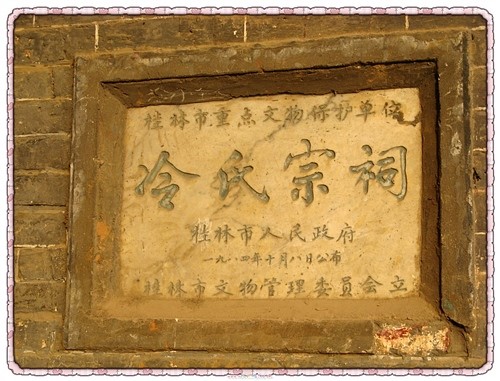 桂林市重点文物保护单位
冷氏宗祠
桂林市人民政府
一九八四年十月八日公布
桂林市文物管理委员会立